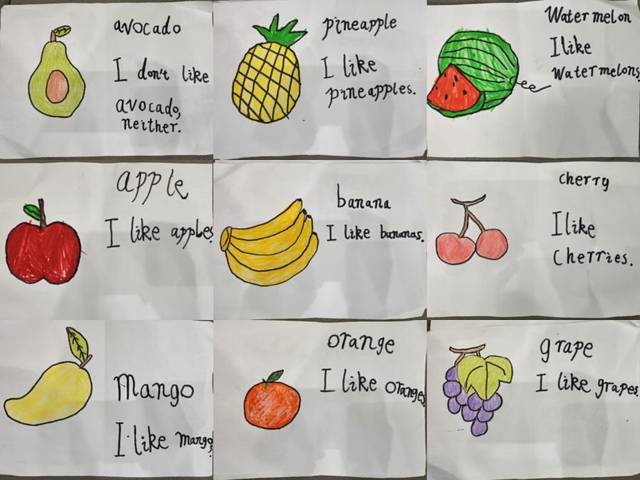 avocado
I don't like
avocado,
neither.
pineapple
I like
pineapples.
Watermelon
I like
Watermelons
apple
I like apples.
banana
I like bananas.
cherry
I like
Cherries.
Mango
I like mango
orange
I like oranges
grape
I like grapes